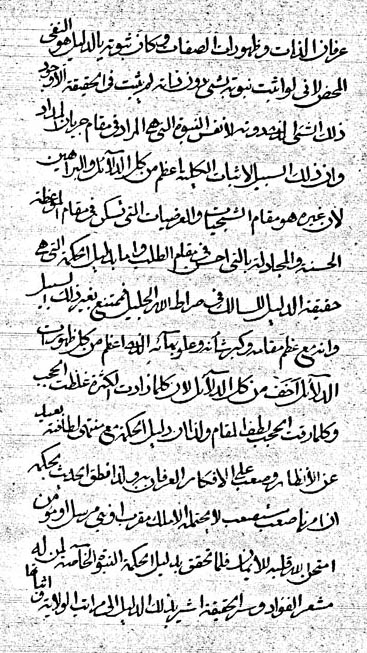 عرفان الذات وظهورات الصفات وكان ثبوته بالدليل هو النفي
المحض لانى لو اثبت نبوته بشئ دون ذاته لم يثبت في الحقيقة الا وجود
ذلك الشئ لنفس النبوة التي هي المراد في مقام جريان المداد
وان ذلك السبيل لاثبات الكلية اعظم من كل الدلائل والبراهين
لان غيره هو مقام الشبحيات والعرضيات التي تمكن في مقام الموعظة
الحسنة والمجادلة بالتي احسن في مقام الطلب واما دليل الحكمة التي هي
حقيقة الدليل للسالك في صراط الامر الجليل فممتنع بغير ذلك السبيل
وانه مع عظم مقامه وكبر شأنه وعلو بهائه الذي اعظم من كل ظهورات
الدلائل اخف من كل الدلائل لان كلما زادت الكثرة غلظت الحجب
وكلما رقت الحجب لطف المقام ولذا ان دليل الحكمة مع منتهى لطافته بعيد
عن الانظار وصعب على الافكار العرفان به ولذا نطق الحديث بحكمه
ان امرنا صعب مستصعب لا يحتمله الا ملك مقرب او نبي مرسل او مؤمن
امتحن الله قلبه للايمان فلما تحقق بدليل الحكمة النبوة الخاصة لمن له
مشعر الفؤاد وسر الحقيقة اشير بذلك الدليل الى مراتب الولاية